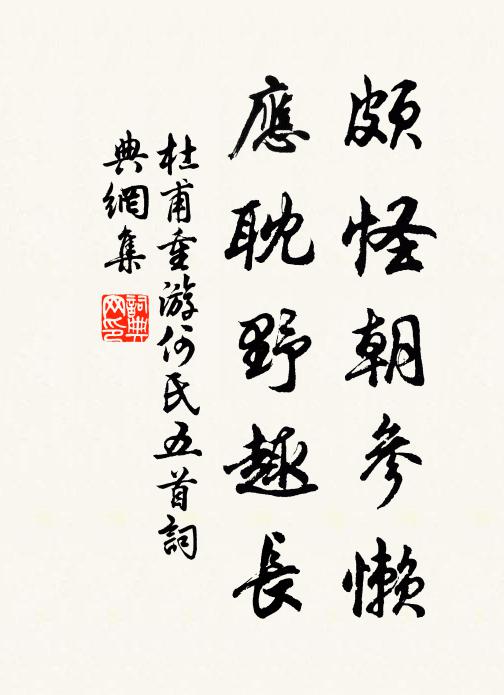 頗怪朝參懶
應耽野趣長
杜甫重游何氏五首詞
典網集
詞典
网印